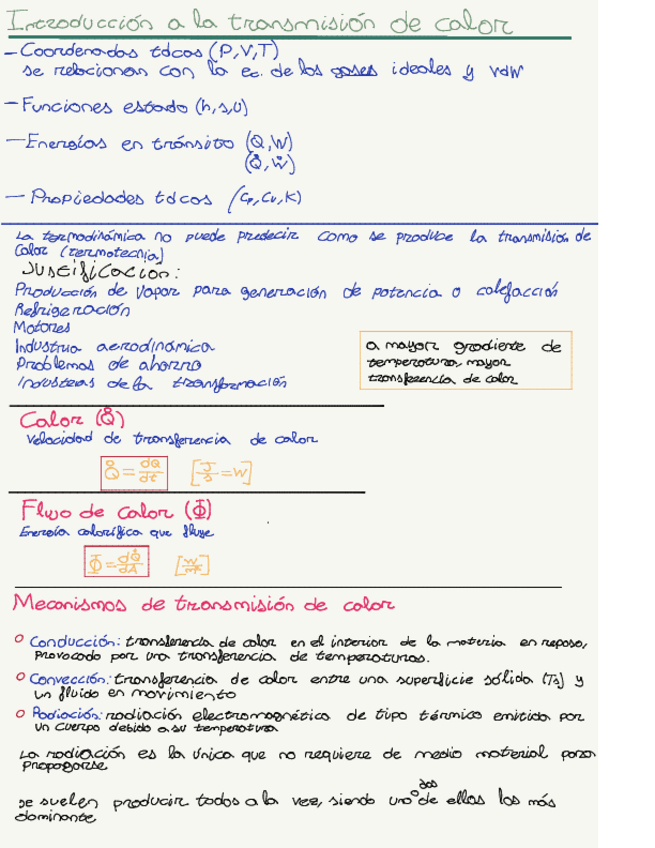 Introducción a la transmisión de calor
- Coordenadas tdcas (P,V,T)
se relacionan con la ec. de los gases ideales y vdW
- Funciones estado (h,s,u)
- Energías en tránsito (Q,W)
(Q̇,Ẇ)
- Propiedades tdcas (Cp,Cv,K)
La termodinámica no puede predecir como se produce la transmisión de
calor (termotecnia)
Justificación:
Producción de vapor para generación de potencia o calefacción
Refrigeración
Motores
Industria aerodinámica
Problemas de ahorro
Industrias de la transformación
a mayor gradiente de
temperatura, mayor
transferencia de calor
Calor (Q̇)
Velocidad de transferencia de calor
Q̇ = dQ/dt [J/s = W]
Flujo de calor (Φ)
Energía calorífica que fluye
Φ = dQ̇/dA [W/m²]
Mecanismos de transmisión de calor
o Conducción: transferencia de calor en el interior de la materia en reposo,
provocado por una transferencia de temperaturas.
o Convección: transferencia de calor entre una superficie sólida (Ts) y
un fluido en movimiento
o Radiación: radiación electromagnética de tipo térmico emitida por
un cuerpo debido a su temperatura
La radiación es la única que no requiere de medio material para
propagarse
Se suelen producir todos a la vez, siendo uno o dos de ellos los más
dominante